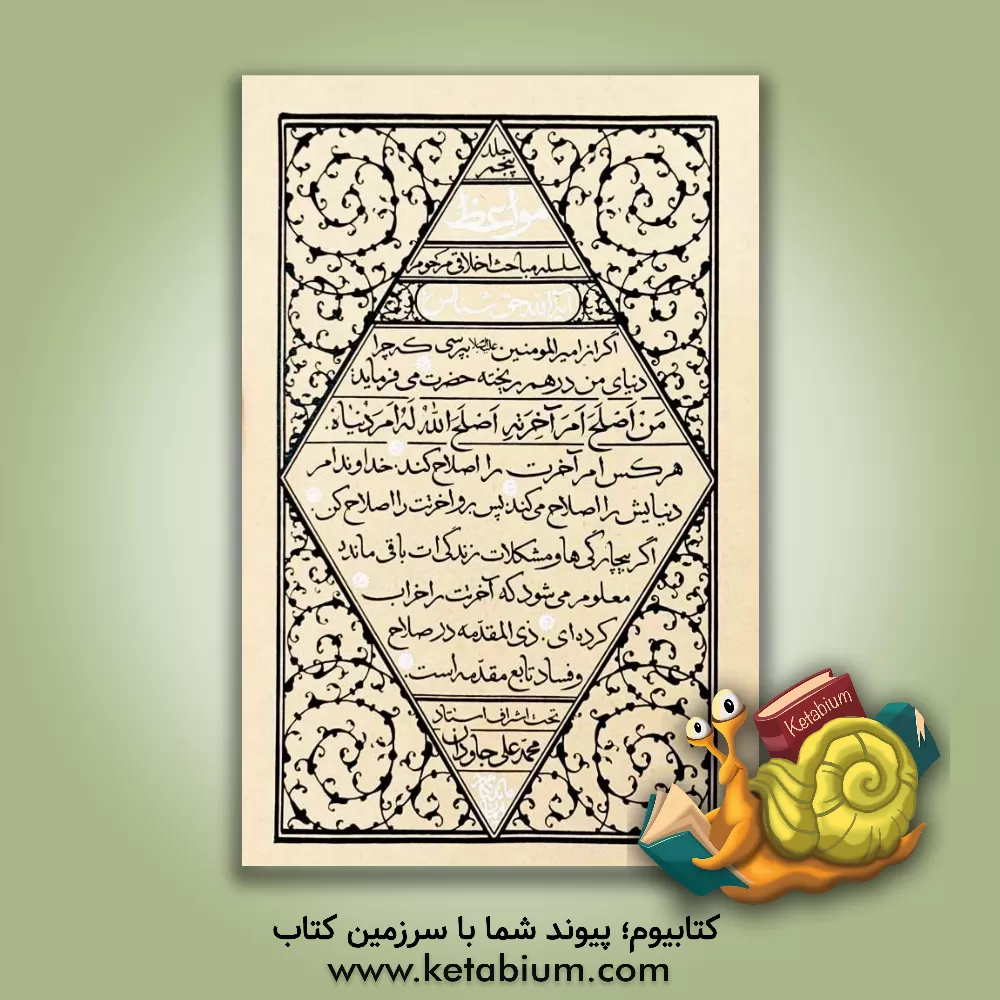 جلد
پنجم
مواعظ
سلسله مباحث اخلاقی مرحوم
آیة الله حق شناس
اگر از امیرالمومنین علیه‌السلام بپرسی که چرا
دنیای من درهم ریخته حضرت می فرماید:
مَنْ اَصْلَحَ اَمَرَ آخِرَتِهِ اَصْلَحَ اللهُ لَهُ اَمرَ دُنیاهُ.
هر کس امر آخرت را اصلاح کند. خداوند امر
دنیایش را اصلاح می کند؛ پس برو اخرتت را اصلاح کن.
اگر بیچارگی ها و مشکلات زندگی ات باقی ماند
معلوم می شود که آخرتت را خراب
کرده ای. ذی المقدمه در صلاح
و فساد تابع مقدّمه است.
تحت اشراف استاد
محمّد علی جاودان
Ketabium
کتابیوم؛ پیوند شما با سرزمین کتاب
www.ketabium.com